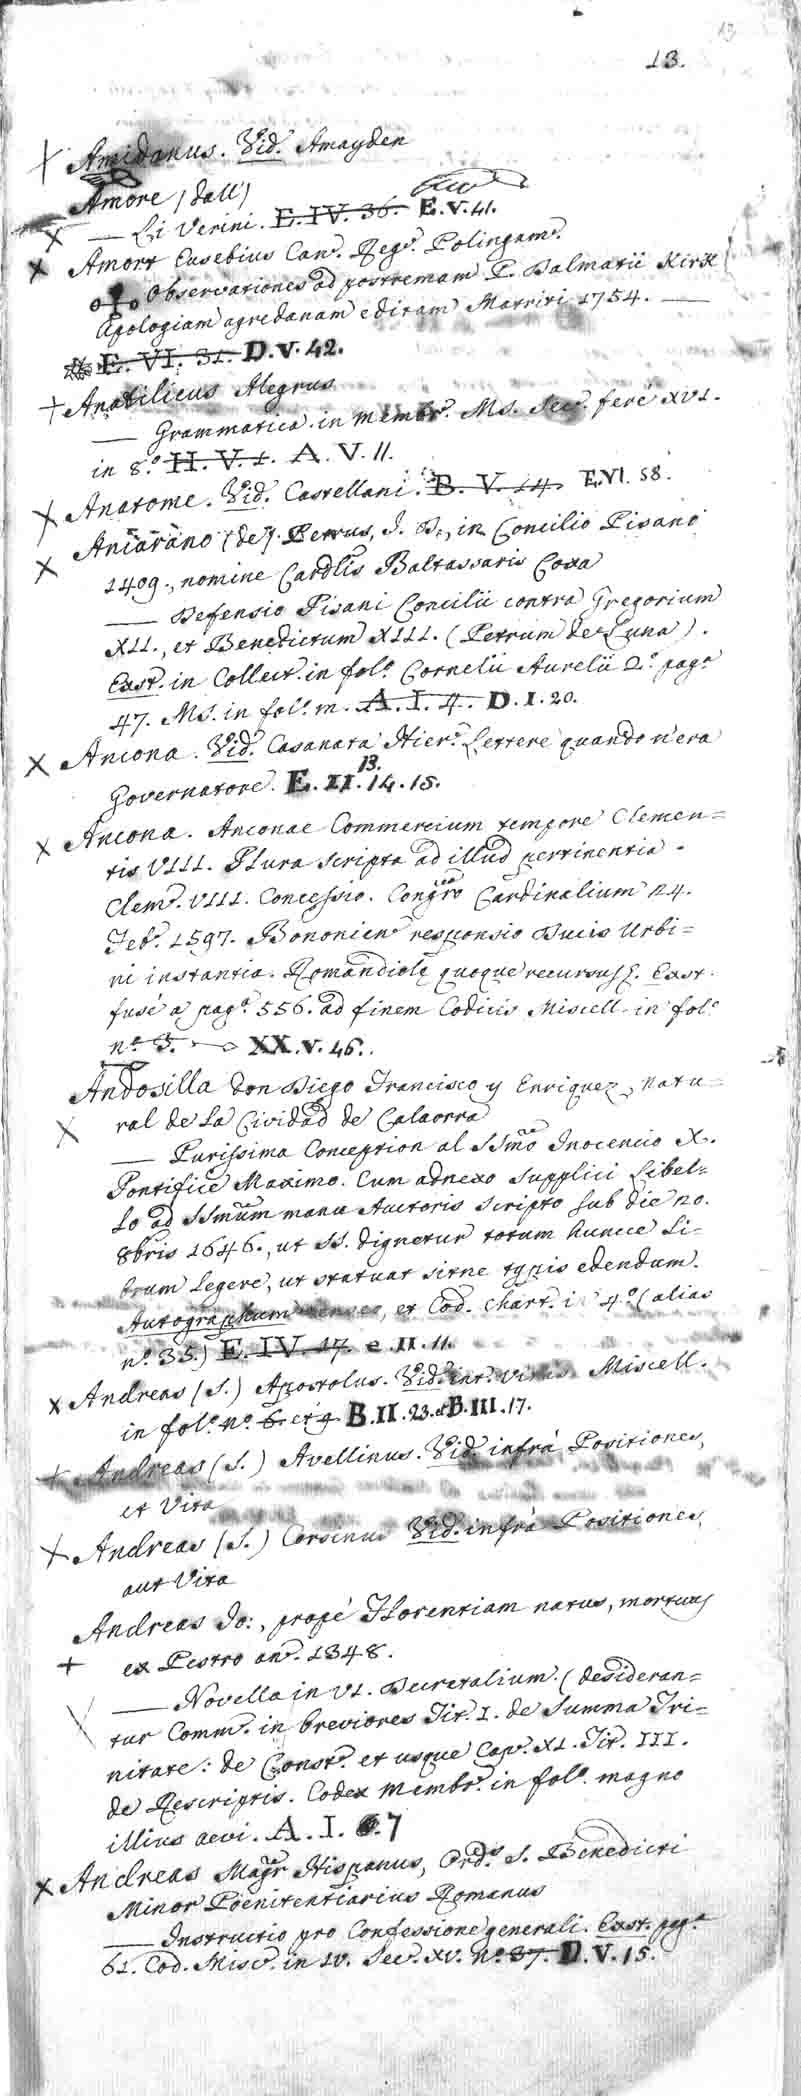 13
13.
Amidanus. Vid. Amayden
Amore (dall')
— Li Verini. E. IV. 36. E.V.41.
Amort Eusebius Can. Reg. Polingam.
Observationes ad postremam P. Dalmatii Kirk
Apologiam agredanam editam Matriti 1754. —
E. VI. 31. D.V.42.
Anabilicus Alegrus
— Grammatica. in membr. Ms. Sec. feré XVI.
in 8.º H. V. 1. A. V. 11.
Anatome. Vid. Castellani. B. V. 14. E.VI. 58.
Aniarano (de). Petrus, J. D., in Concilio Pisano
1409., nomine Cardlis Baltassaris Coxa
— Defensio Pisani Concilii contra Gregorium
XII., et Benedictum XIII. (Petrum de Luna).
Exst. in Collect. in fol.º Cornelii Aurelii 2.º pag.ª
47. Ms. in fol. m. A. I. 4. D. I. 20.
Ancona. Vid. Casanata Hier.º Lettere quando n'era
Governatore. E. II. 13. 14. 15.
Ancona. Anconae Commercium tempore Clemen=
tis VIII. Plura scripta ad illud pertinentia.
Clem. VIII. Concessio. Congro Cardinalium 24.
Feb. 1597. Bononien responsio Ducis Urbi=
ni instantia. Romandiolę quoque recursus &. Exst.
fusé a pag.ª 556. ad finem Codicis Miscell. in fol.º
n.º 3. XX. V. 46.
Andosilla Don Diego Francisco y Enriquez, natu=
ral de la Cividad de Calaorra
— Purissima Conception al SSmo Inocencio X.
Pontifice Maximo. Cum adnexo supplici Libel=
lo ad SSmum manu Auctoris scripto sub die 20.
8bris 1646., ut SS. dignetur totum hunce Li=
brum legere, ut statuat sitne typis edendum.
Autographum, et Cod. chart. in 4.º (alias
n.º 35.) E. IV. 17. e. II. 11.
Andreas (S.) Apostolus. Vid. int. Vitas Miscell.
in fol.º n.º 6. et 9. B. II. 23. et B. III. 17.
Andreas (S.) Avellinus. Vid. infrà Positiones,
et Vita
Andreas (S.) Corsinus Vid. infrà Positiones,
aut Vita
Andreas Jo:, propè Florentiam natus, mortuus
ex Pestro an. 1348.
— Novella in VI. Decretalium. (desideran=
tur Comm. in breviores Tit. I. de Summa Tri=
nitate: de Const. et usque Cap. XI. Tit. III.
de Rescriptis. Codex membr. in fol. magno
illius aevi. A. I. 7
Andreas Magr Hispanus, Ord. S. Benedicti
Minor Poenitentiarius Romanus
— Instructio pro Confessione generali. Exst. pag.ª
61. Cod. Misc. in 4. Sec. XV. n.º 37. D. V. 15.